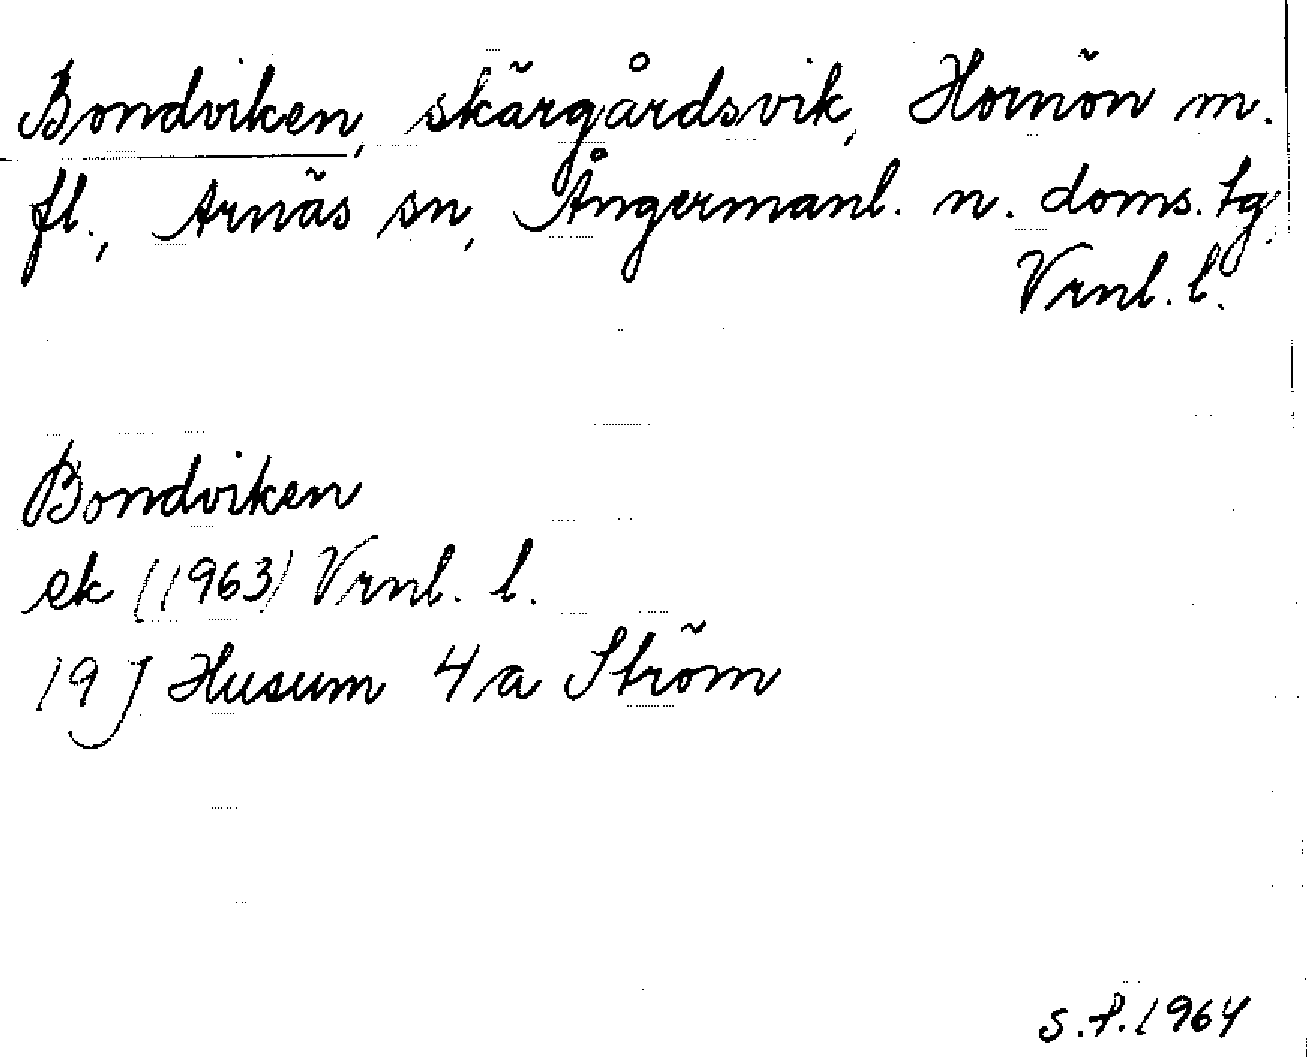 Bondviken, skärgårdsvik, Hornön m.
fl., Arnäs sn, Ångermanl. n. doms. tg,
Vrnl. l.
Bondviken
ek (1963) Vrnl. l.
19 J Husum 4 a Ström
s.f. 1964